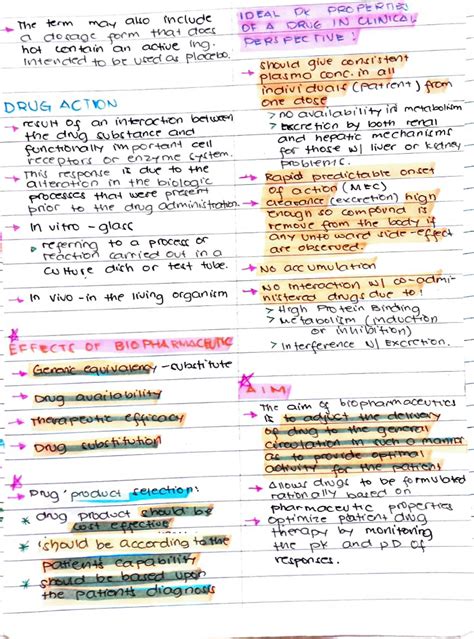 The term may also include
a dosage form that does
not contain an active ing.
intended to be used as placebo.
DRUG ACTION
result of an interaction between
the drug substance and
functionally important cell
receptors or enzyme system.
This response is due to the
alteration in the biologic
processes that were present
prior to the drug administration.
In vitro - glass
referring to a process or
reaction carried out in a
culture dish or test tube.
In vivo - in the living organism
EFFECTS OF BIOPHARMACEUTIC
Generic equivalency - substitute
Drug availability
Therapeutic efficacy
Drug substitution
Drug product selection:
* drug product should be
cost effective
* should be according to the
patients capability
* should be based upon
the patients diagnosis
IDEAL PK PROPERTIES
OF A DRUG IN CLINICAL
PERSPECTIVE:
should give consistent
plasma conc. in all
individuals (patient) from
one dose
> no availability in metabolism
> Excretion by both renal
and hepatic mechanisms
for those w/ liver or kidney
problems.
Rapid predictable onset
of action (MEC)
clearance (excretion) high
enough so compound is
remove from the body if
any untoward side effect
are observed.
No accumulation
No Interaction w/ co-admi-
nistered drugs due to:
> High Protein Binding
> Metabolism (induction
or inhibition)
> Interference w/ Excretion.
AIM
The aim of biopharmaceutics
is to adjust the delivery
of drug to the general
circulation in such a manner
as to provide optimal
activity for the patient
Allows drugs to be formulated
rationally based on
pharmaceutic properties
Optimize patient drug
therapy by monitoring
the PK and PD of
responses.